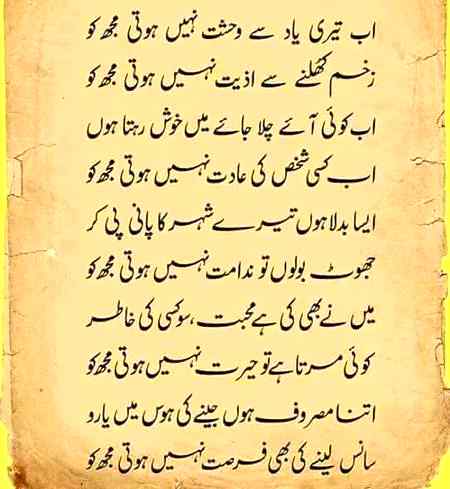 اب تیری یاد سے وحشت نہیں ہوتی مجھ کو
زخم کھلنے سے اذیت نہیں ہوتی مجھ کو
اب کوئی آئے چلا جائے میں خوش رہتا ہوں
اب کسی شخص کی عادت نہیں ہوتی مجھ کو
ایسا بدلا ہوں تیرے شہر کا پانی پی کر
جھوٹ بولوں تو ندامت نہیں ہوتی مجھ کو
میں نے بھی کی ہے محبت ،سو کسی کی خاطر
کوئی مرتا ہے تو حیرت نہیں ہوتی مجھ کو
اتنا مصروف ہوں جینے کی ہوس میں یارو
سانس لینے کی بھی فرصت نہیں ہوتی مجھ کو